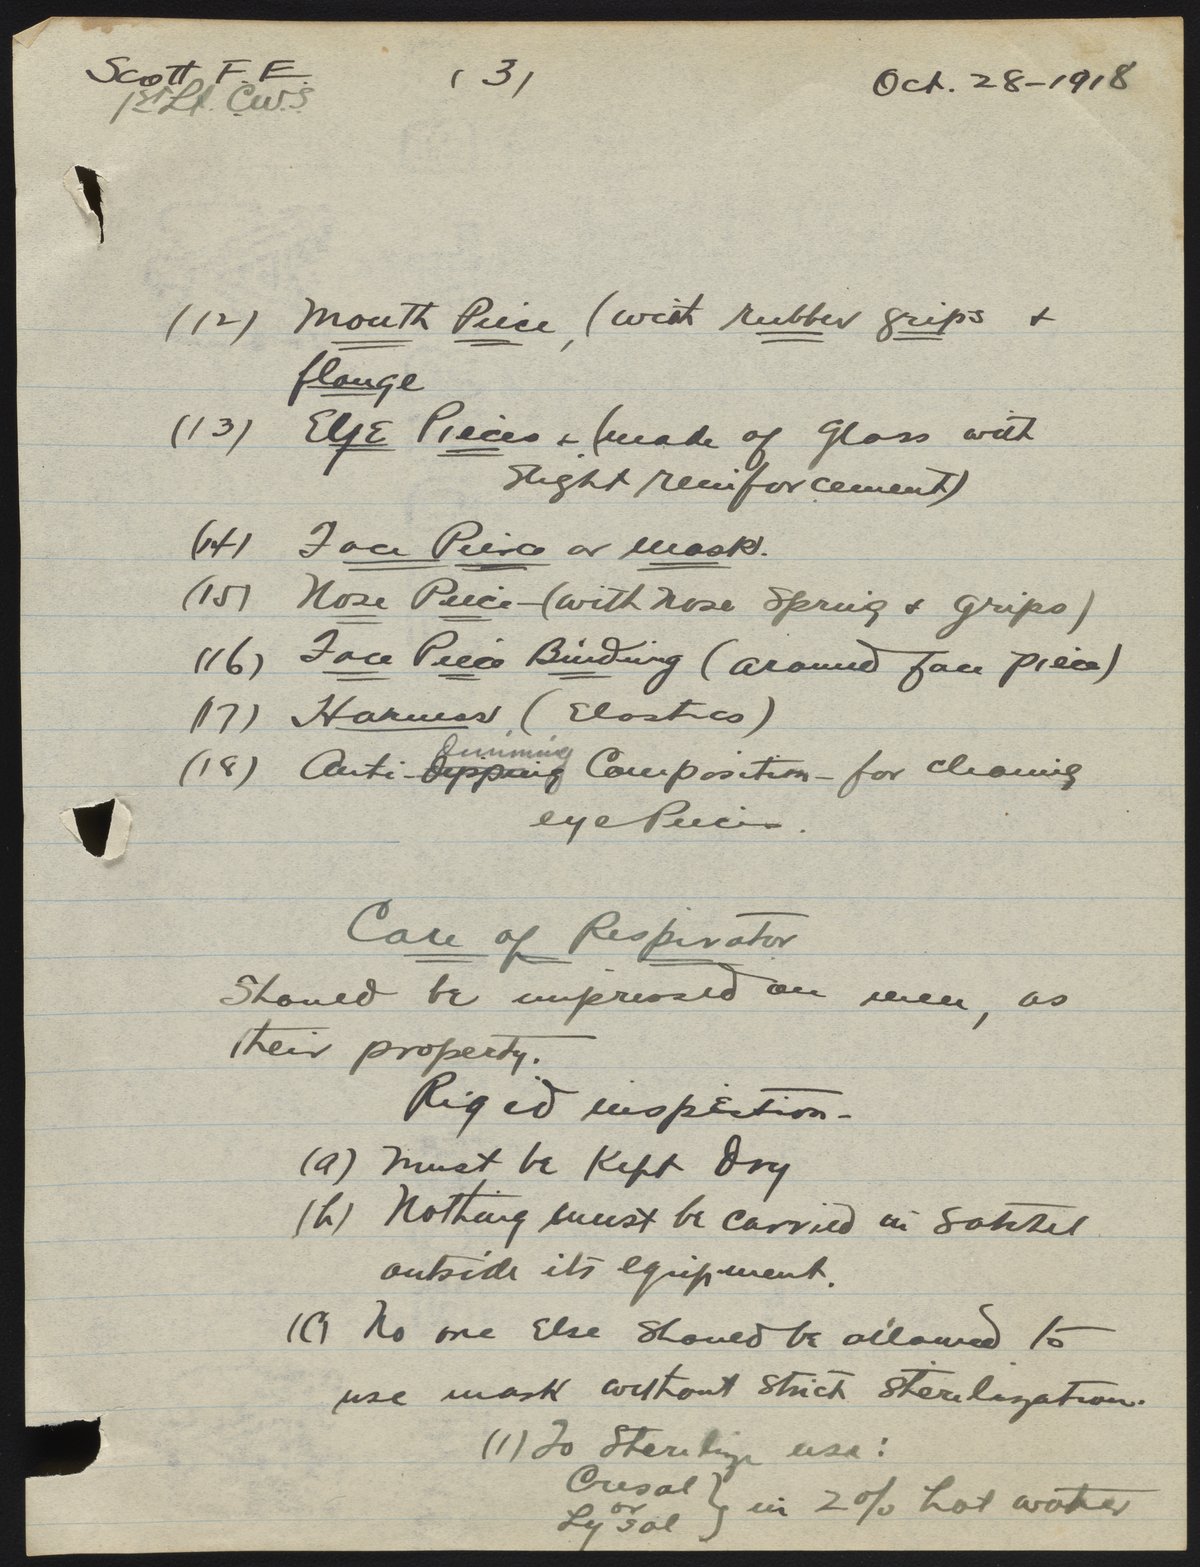 Scott F. E. (3) Oct. 28-1918
1st Lt. C.W.S
(12) Mouth Piece, (with rubber grips +
flange
(13) EyE Pieces + (made of Glass with
Slight reinforcement)
(14) Face Piece or mask.
(15) Nose Piece - (with nose Spring + grips)
(16) Face Piece Binding (around face piece)
(17) Harness (Elastics)
Dimming
(18) Anti-Dipping Composition - for cleaning
eye Pieces.
Care of Respirator
Should be impressed on men, as
their property.
Rigid inspection -
(a) Must be Kept Dry
(b) Nothing must be carried in Satchel
outside its equipment.
(c) No one Else Should be allowed to
use mask without Strict Sterilization.
(1) To Sterilize use:
Cresol
or } in 2% hot water
Lysol